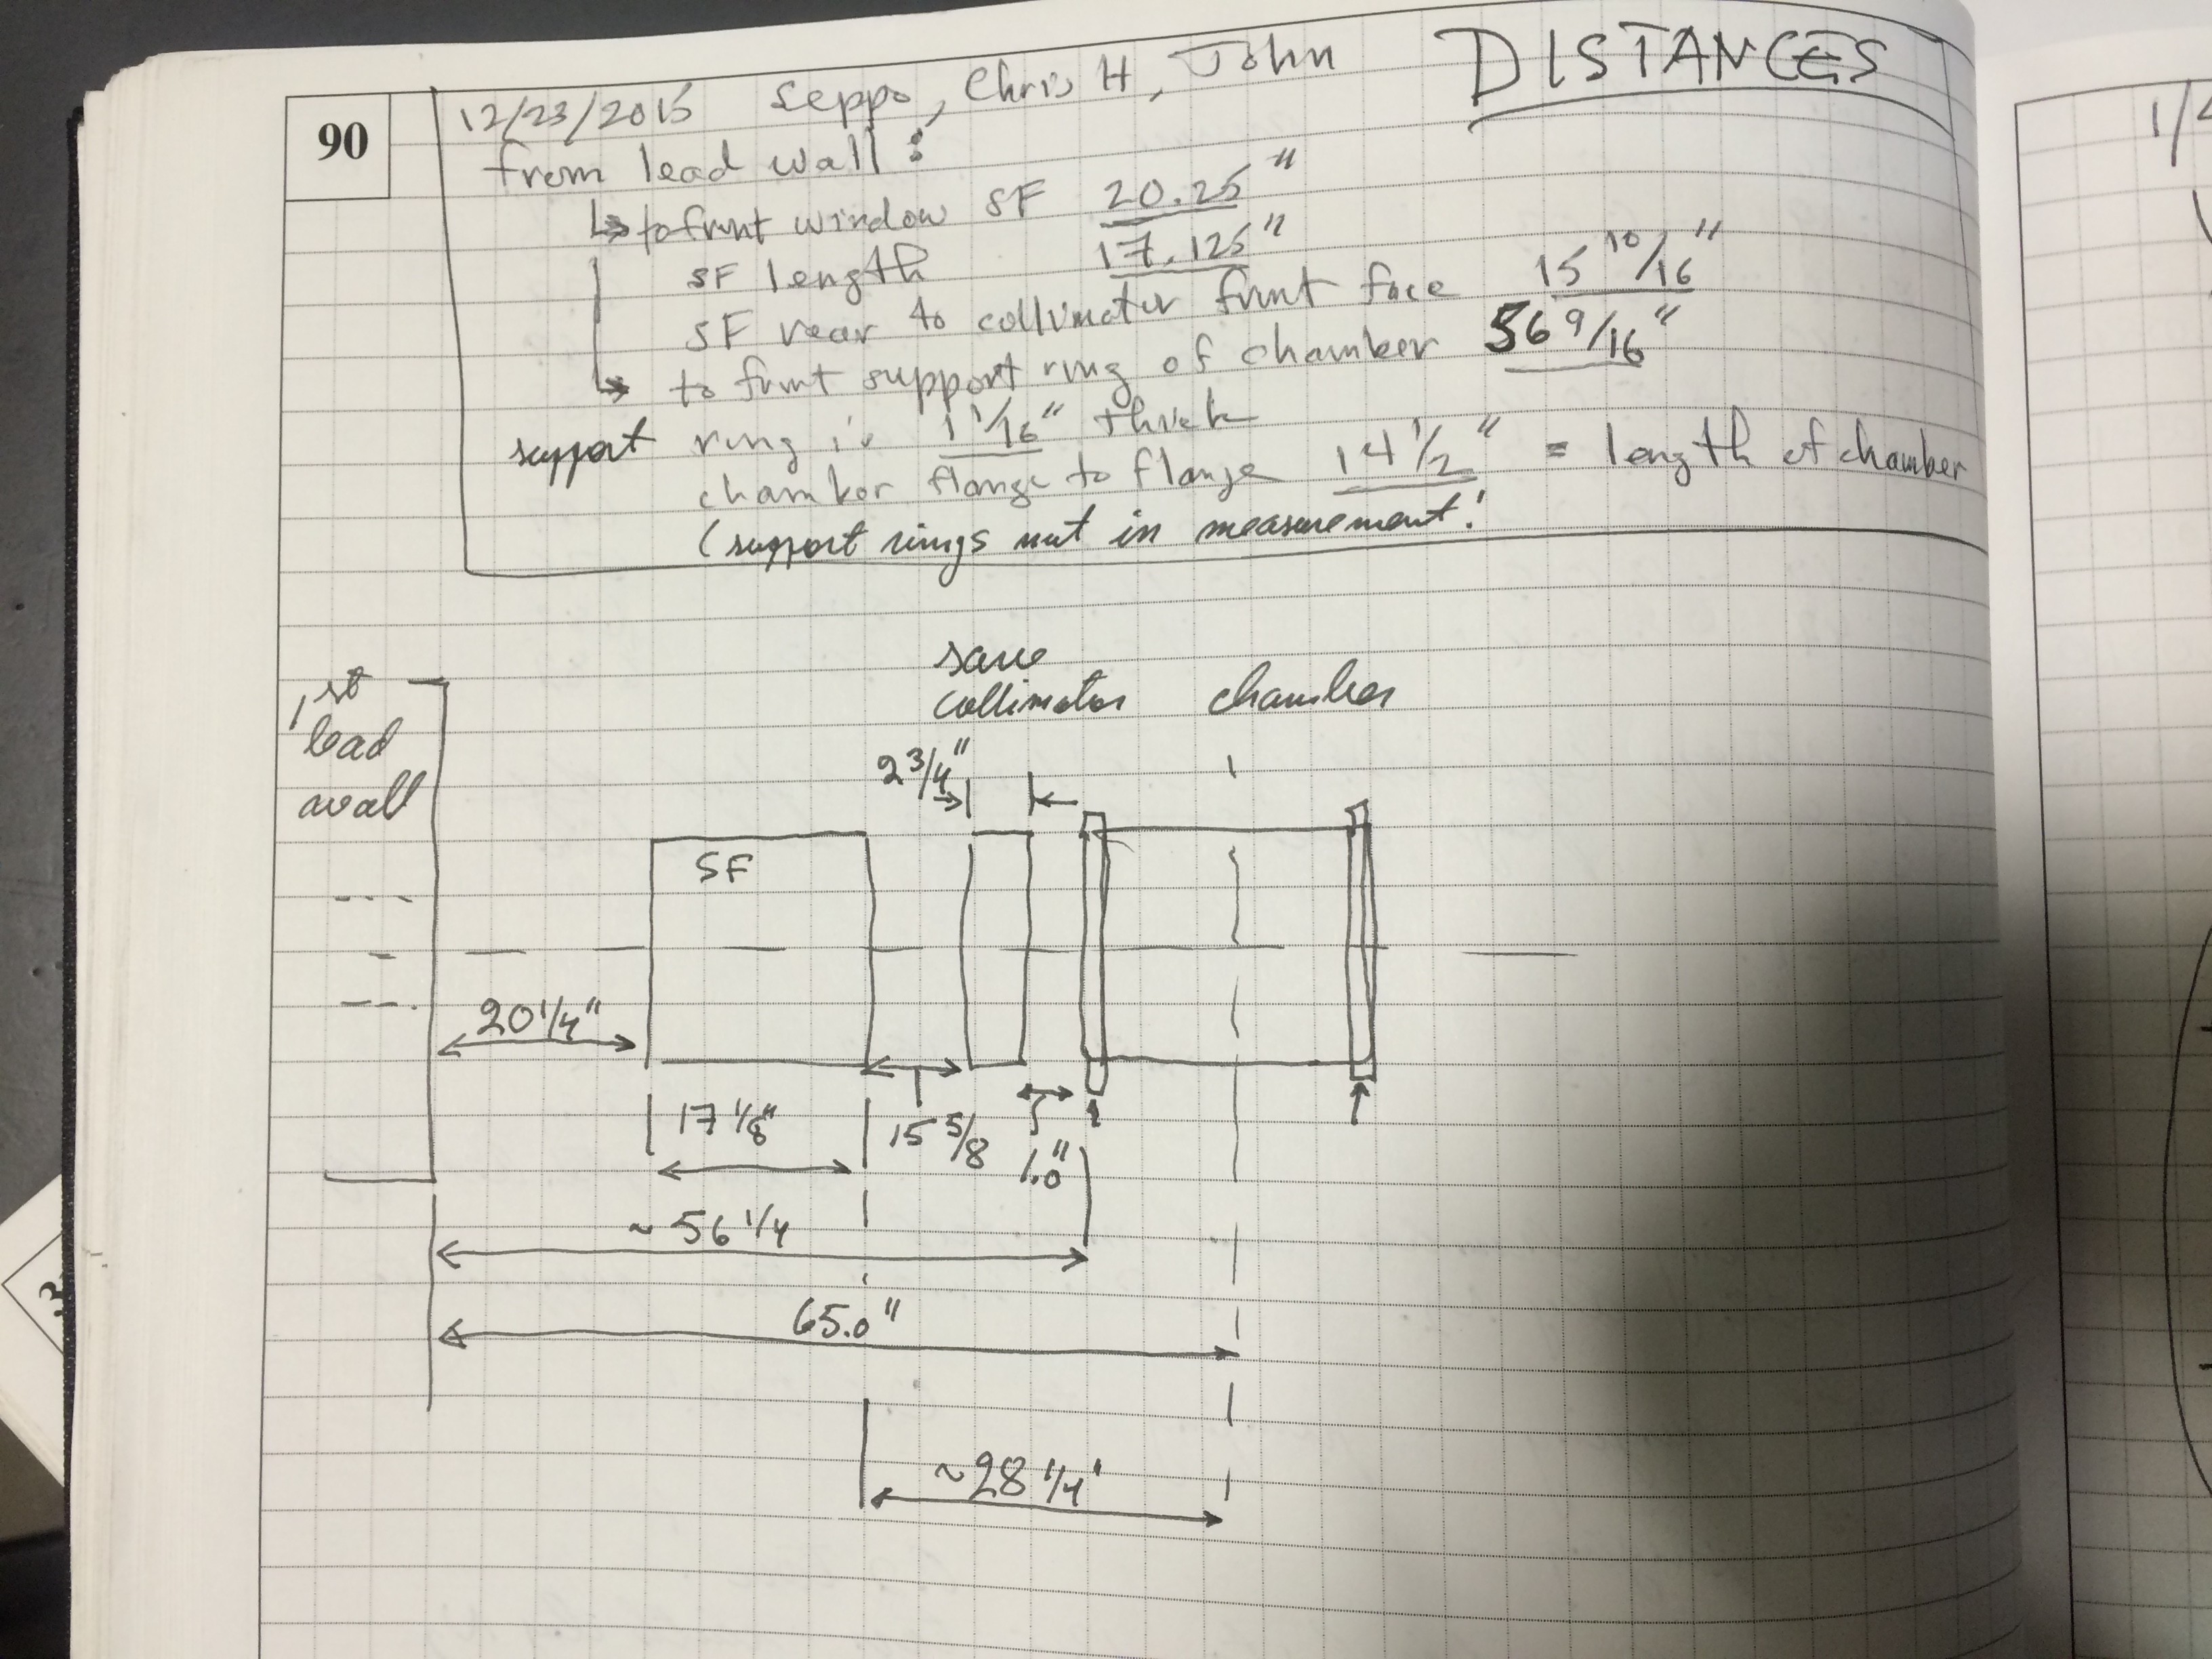 90
12/23/2015 Seppo, Chris H, John DISTANCES
from lead wall:
↳ to frunt window SF 20.25"
SF length 17.125"
SF rear to collimator frunt face 15 10/16"
↳ to frunt support ring of chamber 56 9/16"
support ring is 1 1/16" thick
chamber flange to flange 14 1/2" = length of chamber
(support rings not in measurement!
1st
lead
wall
collimator chamber
2 3/4"
SF
20 1/4"
17 1/8" 15 5/8 1.0"
~ 56 1/4
65.0"
~28 1/4'
1/